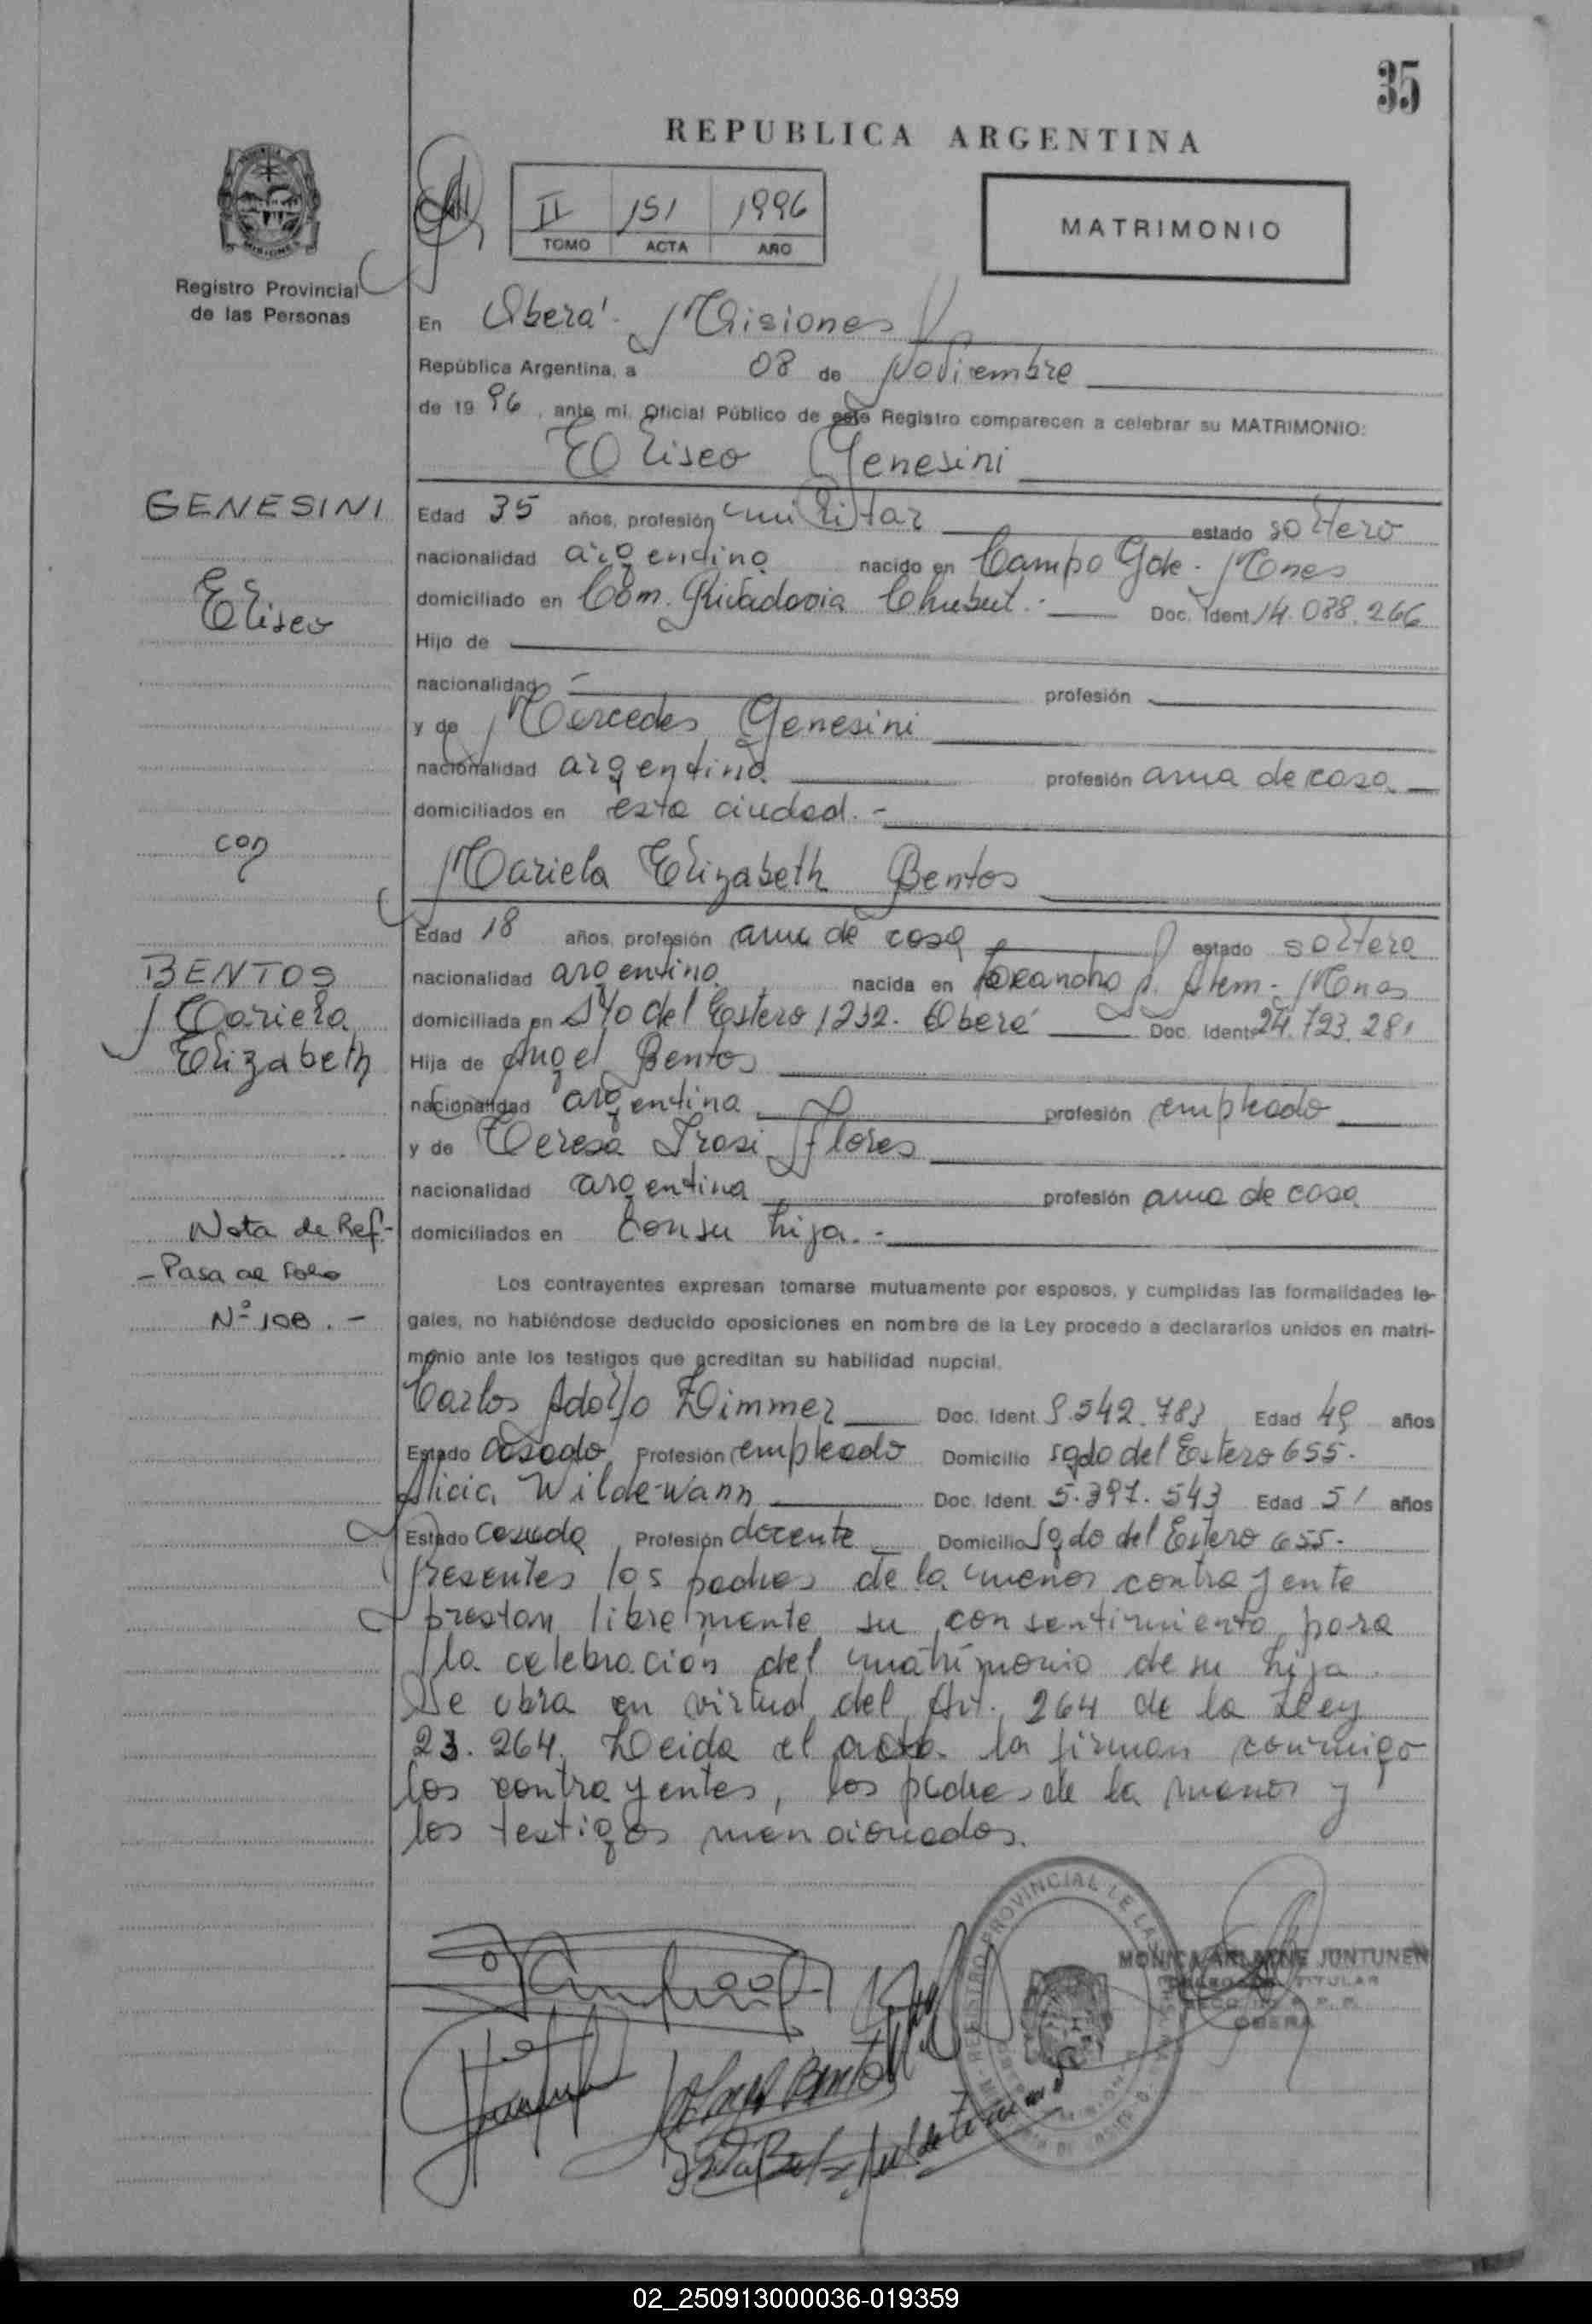 35
REPUBLICA ARGENTINA
II 151 1996
TOMO ACTA AÑO
MATRIMONIO
Registro Provincial
de las Personas
En Oberá - Misiones
República Argentina, a 08 de Noviembre
de 1996, ante mí, Oficial Público de este Registro comparecen a celebrar su MATRIMONIO:
Eliseo Genesini
GENESINI
Eliseo
Edad 35 años, profesión militar estado soltero
nacionalidad argentina nacido en Campo Gde. - Mnes
domiciliado en Com. Rivadavia Chubut.- Doc. Ident. 14.088.266
Hijo de
nacionalidad - profesión
y de Mercedes Genesini
nacionalidad argentina profesión ama de casa
domiciliados en esta ciudad.-
con
Mariela Elizabeth Bentos
BENTOS
Mariela
Elizabeth
Edad 18 años, profesión ama de casa estado soltera
nacionalidad argentina nacida en Leandro N. Alem - Mnes
domiciliada en Sgo del Estero 1232. Oberá Doc. Ident. 24.723.281
Hija de Angel Bentos
nacionalidad argentina profesión empleado
y de Teresa Flores
nacionalidad argentina profesión ama de casa
domiciliados en con su hija.-
Nota de Ref-
- Pasa al Folio
Nº 108.-
Los contrayentes expresan tomarse mutuamente por esposos, y cumplidas las formalidades le-
gales, no habiéndose deducido oposiciones en nombre de la Ley procedo a declararlos unidos en matri-
monio ante los testigos que acreditan su habilidad nupcial.
Carlos Adolfo Dimmer Doc. Ident. 8.542.783 Edad 49 años
Estado casado Profesión empleado Domicilio sgdo del Estero 655.
Alicia Wildemann Doc. Ident. 5.397.543 Edad 51 años
Estado casada Profesión docente Domicilio Sgdo del Estero 655.
Presentes los padres de la menor contrayente
prestan libremente su consentimiento para
la celebración del matrimonio de su hija.
Se obra en virtud del Art. 264 de la Ley
23.264. Leida el acta. la firman conmigo
los contrayentes, los padres de la menor y
los testigos mencionados.
REGISTRO PROVINCIAL DE LAS
MONICA JUNTUNEN
TITULAR
OBERA
Bentos
02_250913000036-019359